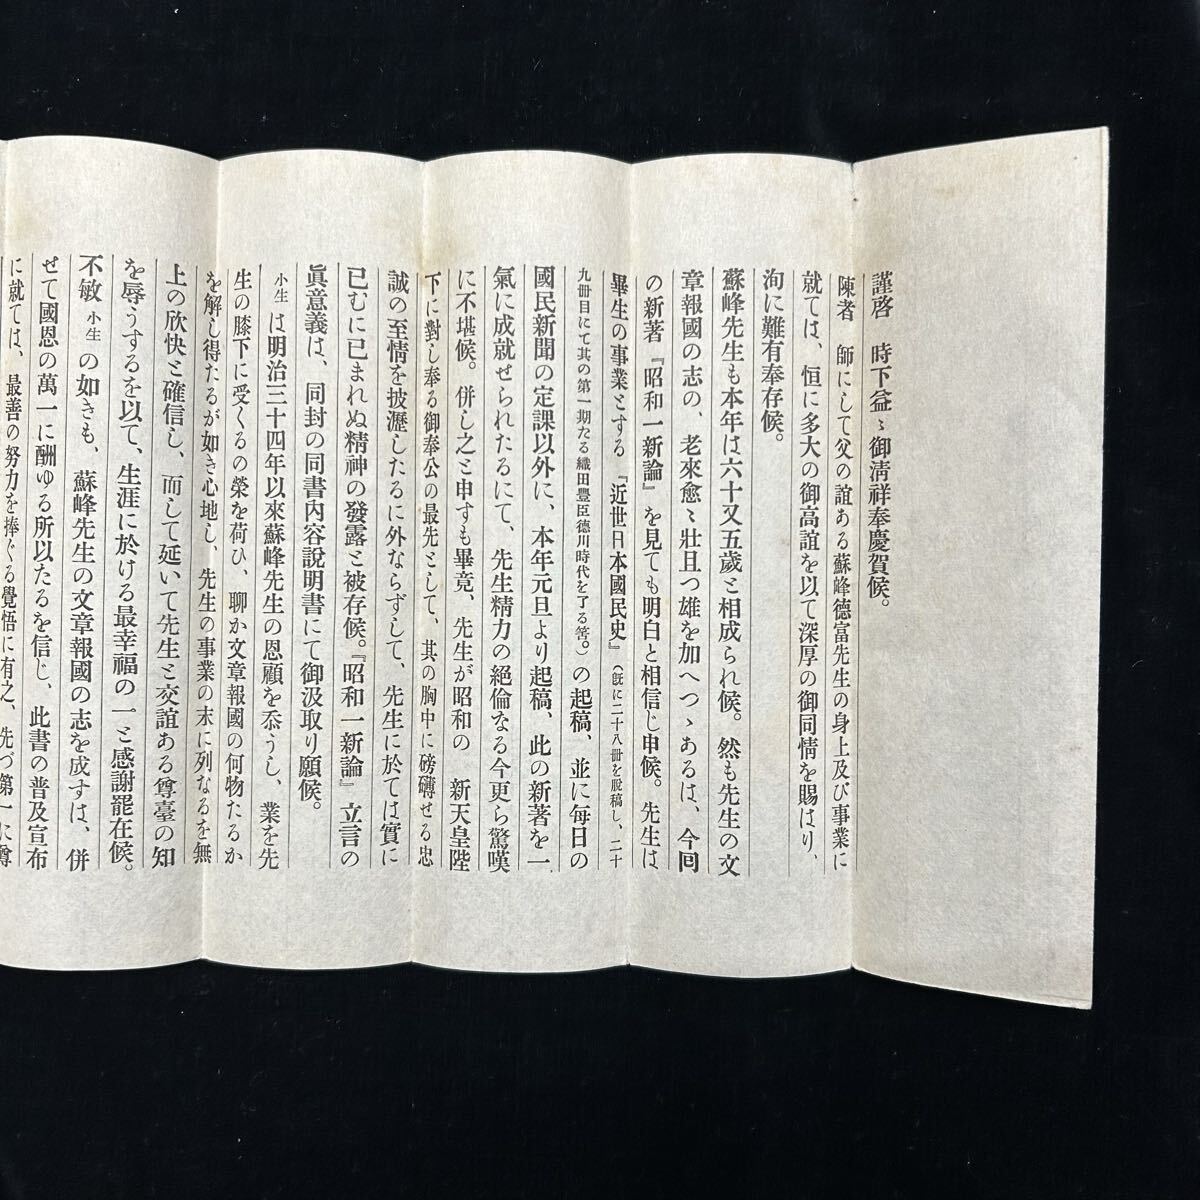 謹啓　時下益〻御淸祥奉慶賀候。
陳者　師にして父の誼ある蘇峰德富先生の身上及び事業に
就ては、恒に多大の御高誼を以て深厚の御同情を賜はり、
洵に難有奉存候。
蘇峰先生も本年は六十又五歲と相成られ候。然も先生の文
章報國の志の、老來愈〻壯且つ雄を加へつゝあるは、今囘
の新著『昭和一新論』を見ても明白と相信じ申候。先生は
畢生の事業とする『近世日本國民史』（既に二十八冊を脫稿し、二十
九冊目にて其の第一期たる織田豐臣德川時代を了る筈。）の起稿、並に每日の
國民新聞の定課以外に、本年元旦より起稿、此の新著を一
氣に成就せられたるにて、先生精力の絕倫なる今更ら驚嘆
に不堪候。併し之と申すも畢竟、先生が昭和の　新天皇陛
下に對し奉る御奉公の最先として、其の胸中に磅礴せる忠
誠の至情を披瀝したるに外ならずして、先生に於ては實に
已むに已まれぬ精神の發露と被存候。『昭和一新論』立言の
眞意義は、同封の同書內容說明書にて御汲取り願候。
小生は明治三十四年以來蘇峰先生の恩顧を忝うし、業を先
生の膝下に受くるの榮を荷ひ、聊か文章報國の何物たるか
を解し得たるが如き心地し、先生の事業の末に列なるを無
上の欣快と確信し、而して延いて先生と交誼ある尊臺の知
を辱うするを以て、生涯に於ける最幸福の一と感謝罷在候。
不敏小生の如きも、蘇峰先生の文章報國の志を成すは、併
せて國恩の萬一に酬ゆる所以たるを信じ、此書の普及宣布
に就ては、最善の努力を捧ぐる覺悟に有之、先づ第一に尊